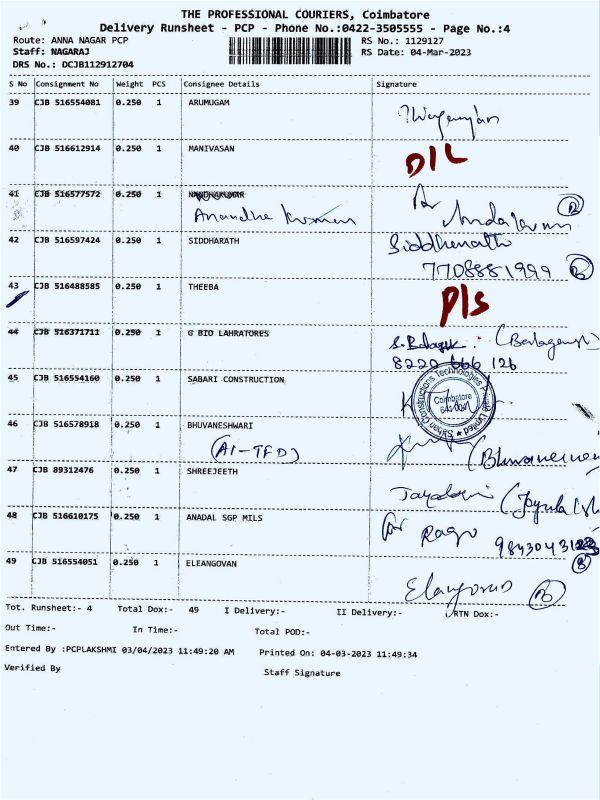 THE PROFESSIONAL COURIERS, Coimbatore
Delivery Runsheet - PCP - Phone No.:0422-3505555 - Page No.:4
Route: ANNA NAGAR PCP RS No.: 1129127
Staff: NAGARAJ RS Date: 04-Mar-2023
DRS No.: DCJB112912704
S No Consignment No Weight PCS Consignee Details Signature
39 CJB 516554081 0.250 1 ARUMUGAM
40 CJB 516612914 0.250 1 MANIVASAN D/L
41 CJB 516577572 0.250 1 NANDHAKUMAR
Anandha kumar
42 CJB 516597424 0.250 1 SIDDHARATH Siddharath
7708881999
43 CJB 516488585 0.250 1 THEEBA P/s
44 CJB 516371711 0.250 1 G BIO LAHRATORES
8220 666 126
45 CJB 516554160 0.250 1 SABARI CONSTRUCTION
Coimbatore
46 CJB 516578918 0.250 1 BHUVANESHWARI
(AI-TFD)
47 CJB 89312476 0.250 1 SHREEJEETH
48 CJB 516610175 0.250 1 ANADAL SGP MILS for Ragu
49 CJB 516554051 0.250 1 ELEANGOVAN
Elangovan
Tot. Runsheet:- 4 Total Dox:- 49 I Delivery:- II Delivery:- RTN Dox:-
Out Time:- In Time:- Total POD:-
Entered By :PCPLAKSHMI 03/04/2023 11:49:20 AM Printed On: 04-03-2023 11:49:34
Verified By Staff Signature